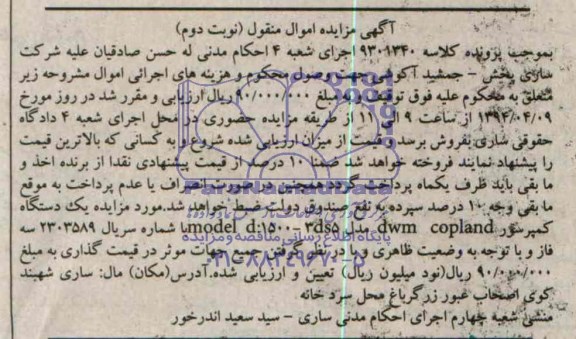 آگهی مزایده اموال منقول (نوبت دوم)
بموجب پرونده کلاسه ۹۳۰۱۳۴۰ اجرای شعبه ۴ احکام مدنی له حسن صادقیان علیه شرکت
ساری پخش - جمشید آکوشی جهت وصول محکوم و هزینه های اجرائی اموال مشروحه زیر
متعلق به محکوم علیه فوق توقیف و به مبلغ ۹۰/۰۰۰/۰۰۰ ریال ارزیابی و مقرر شد در روز مورخ
۱۳۹۴/۰۴/۰۹ از ساعت ۹ الی ۱۱ از طریقه مزایده حضوری در محل اجرای شعبه ۴ دادگاه
حقوقی ساری بفروش برسد و قیمت از میزان ارزیابی شده شروع و به کسانی که بالاترین قیمت
را پیشنهاد نمایند فروخته خواهد شد ضمنا ۱۰ درصد از قیمت پیشنهادی نقدا از برنده اخذ و
ما بقی باید ظرف یکماه پرداخت گردد همچنین در صورت انصراف یا عدم پرداخت به موقع
ما بقی وجه ۱۰ درصد سپرده به نفع صندوق دولت ضبط خواهد شد.مورد مزایده یک دستگاه
کمپرسور dwm copland مدل model d:۱۵۰۰- ۳ds۵ با شماره سریال ۲۳۰۳۵۸۹ سه
فاز و با توجه به وضعیت ظاهری و با در نظر گرفتن جمیع جهات موثر در قیمت گذاری به مبلغ
۹۰/۰۰۰/۰۰۰ ریال(نود میلیون ریال) تعیین و ارزیابی شده.آدرس(مکان) مال: ساری شهبند
کوی اصحاب عبور زرگرباغ محل سرد خانه
منشی شعبه چهارم اجرای احکام مدنی ساری - سید سعید اندرخور
پایگاه اطلاع رسانی مناقصه و مزایده
۰۲۱-۸۸۳۴۹۶۷۰-۵